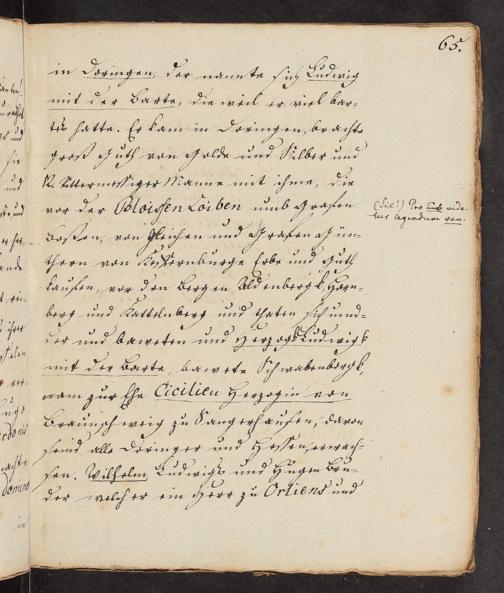 65.
in Doringen, der nannte sich Ludwig
mit der Barte, die weil er viel bar-
tes hatte. Er kam in Doringen, brachte
groß Guth von Golde und Silber und
Rittermessiger Manne mit ihme, die
vor der Bloissen Loiben umb Grafen
von Gleichen und Grafen Gün-
thern von Kefernburge Erbe und Guth
kaufen, vor den Bergen Aldenbergk, Horn-
berg und Kattenberg und thaten sich und-
der und baweten und Herzogk Ludwigk
mit der Barte, bawete Schwabenborgk,
nam zur Ehe Cicilien Herzogin von
Braunschweig zu Sangerhausen, davon
seind alle Doringer und Hessen erwach-
sen. Wilhelm, Ludwigs und Hugen Bru-
der welcher ein Herr zu Orliens und
(Sic!) Pro umb vide-
tur legendum von